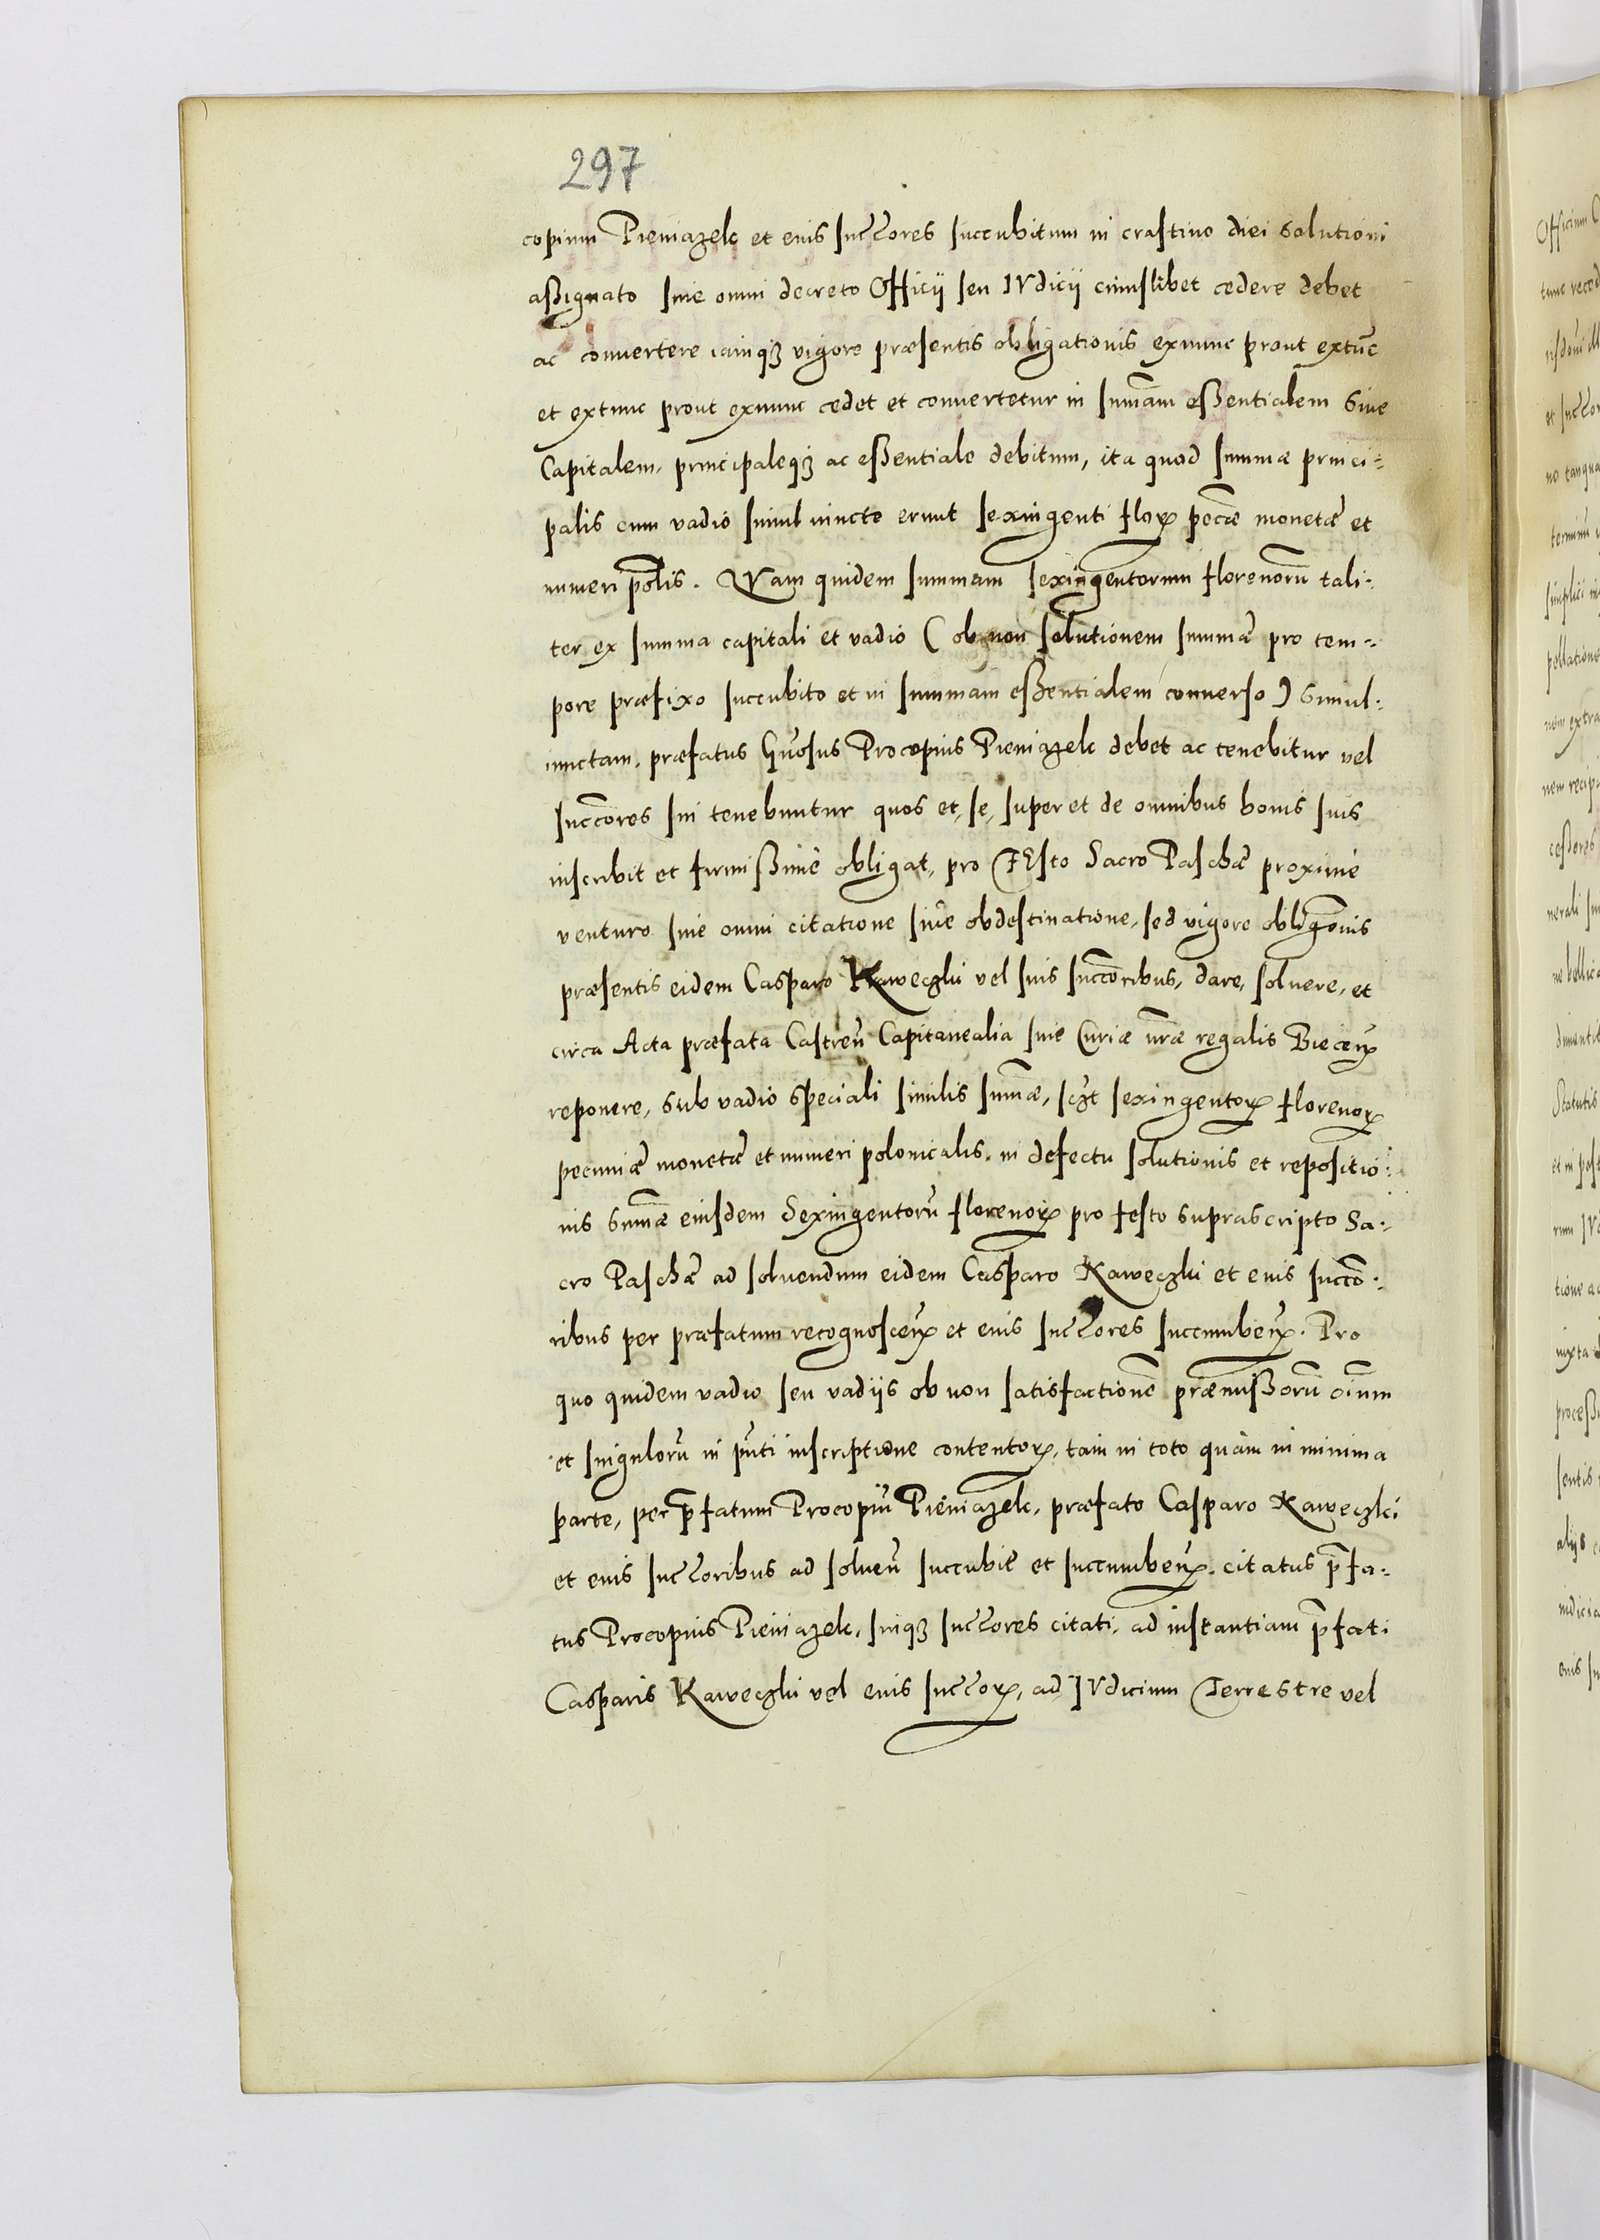 297
copium Pieniazek et eius succores succubitum in crastino diei solutioni
assignato sine omni decreto Officij seu IVdicij cuiuslibet cedere debet
ac convertere iamqȝ vigore præsentis obligationis exnunc prout extūc
et extunc prout exnunc cedet et convertetur in sum̄am essentialem siue
Capitalem, principaleqȝ ac essentiale debitum, ita quod summæ princi-
palis cum vadio simul iuncto erunt sexingenti floꝝ pecc̄æ monetæ et
numeri pōlis. QVam quidem summam sexingentorum florenorū tali-
ter ex summa capitali et vadio (ob non solutionem summæ pro tem-
pore præfixo succubito et in summam essentialem converso) simul
iunctam, præfatus Gn̄osus Procopius Pieniazek debet ac tenebitur vel
succōres sui tenebuntur quos et, se, super et de omnibus bonis suis
inscribit et firmissimè obligat, pro FEsto Sacro Paschæ proximè
venturo sine omni citatione siue obdestinatione, sed vigore obligōnis
præsentis eidem Casparo Kaweczki vel suis succōribus, dare, solvere, et
circa Acta præfata Castreñ Capitanealia siue Curiæ nræ regalis Bieceñ
reponere, sub vadio speciali similis sum̄æ, sczt sexingentoꝝ florenoꝝ
pecuniæ monetæ et numeri polonicalis, in defectu solutionis et repositio-
nis sum̄æ eiusdem Sexingentorū florenoꝝ pro festo suprascripto Sa-
cro Paschæ ad solvendum eidem Casparo Kaweczki et eius succō-
ribus per præfatum recognosceñ et eius succores succumbeñ. Pro
quo quidem vadio seu vadijs ob non satisfactionē præmissorū oīum
et singulorū in pn̄ti inscriptione contentoꝝ, tam in toto quàm in minima
parte, per p̄fatum Procopiū Pieniazek, præfato Casparo Kaweczki
et eius succoribus ad solveñ succubit̄ et succumbeñ. citatus p̄fa-
tus Procopius Pieniazek, suiqȝ succores citati, ad instantiam p̄fati
Casparis Kaweczki vel eius succoꝝ, ad IVdicium Terrestre vel